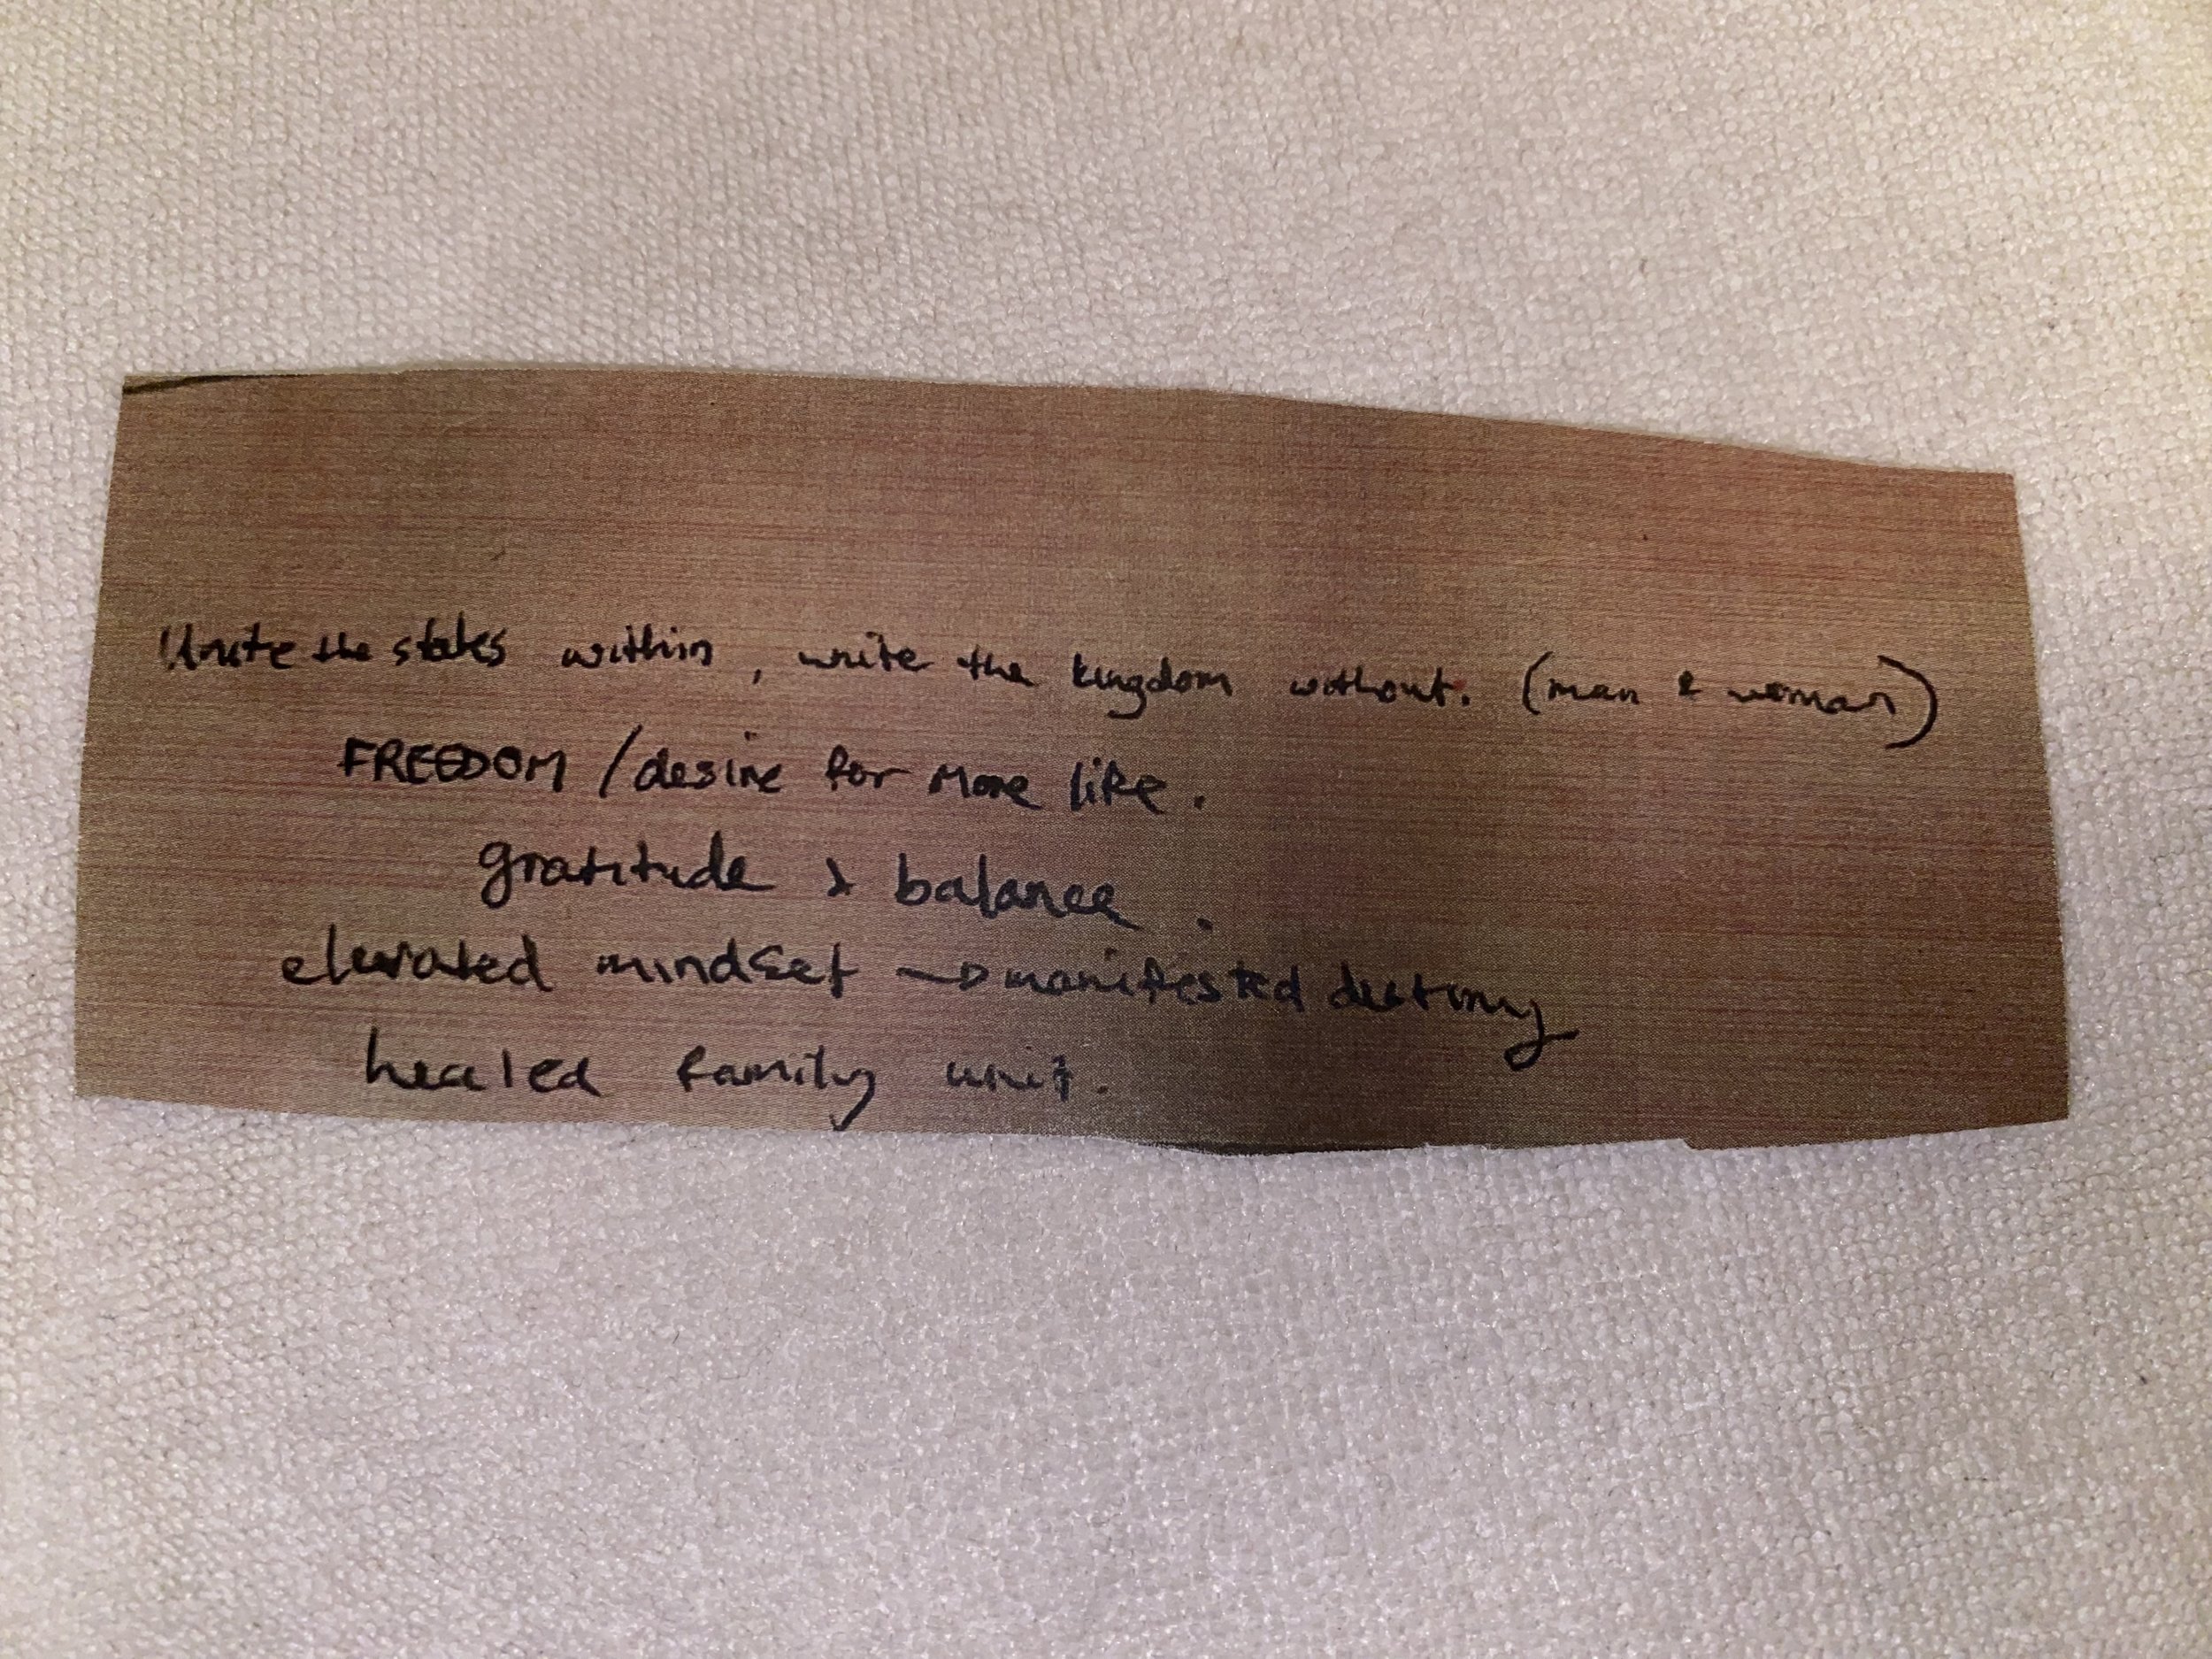 Unite the states within, unite the kingdom without. (man & woman)
FREEDOM / desire for more life.
gratitude & balance.
elevated mindset → manifested destiny
healed family unit.